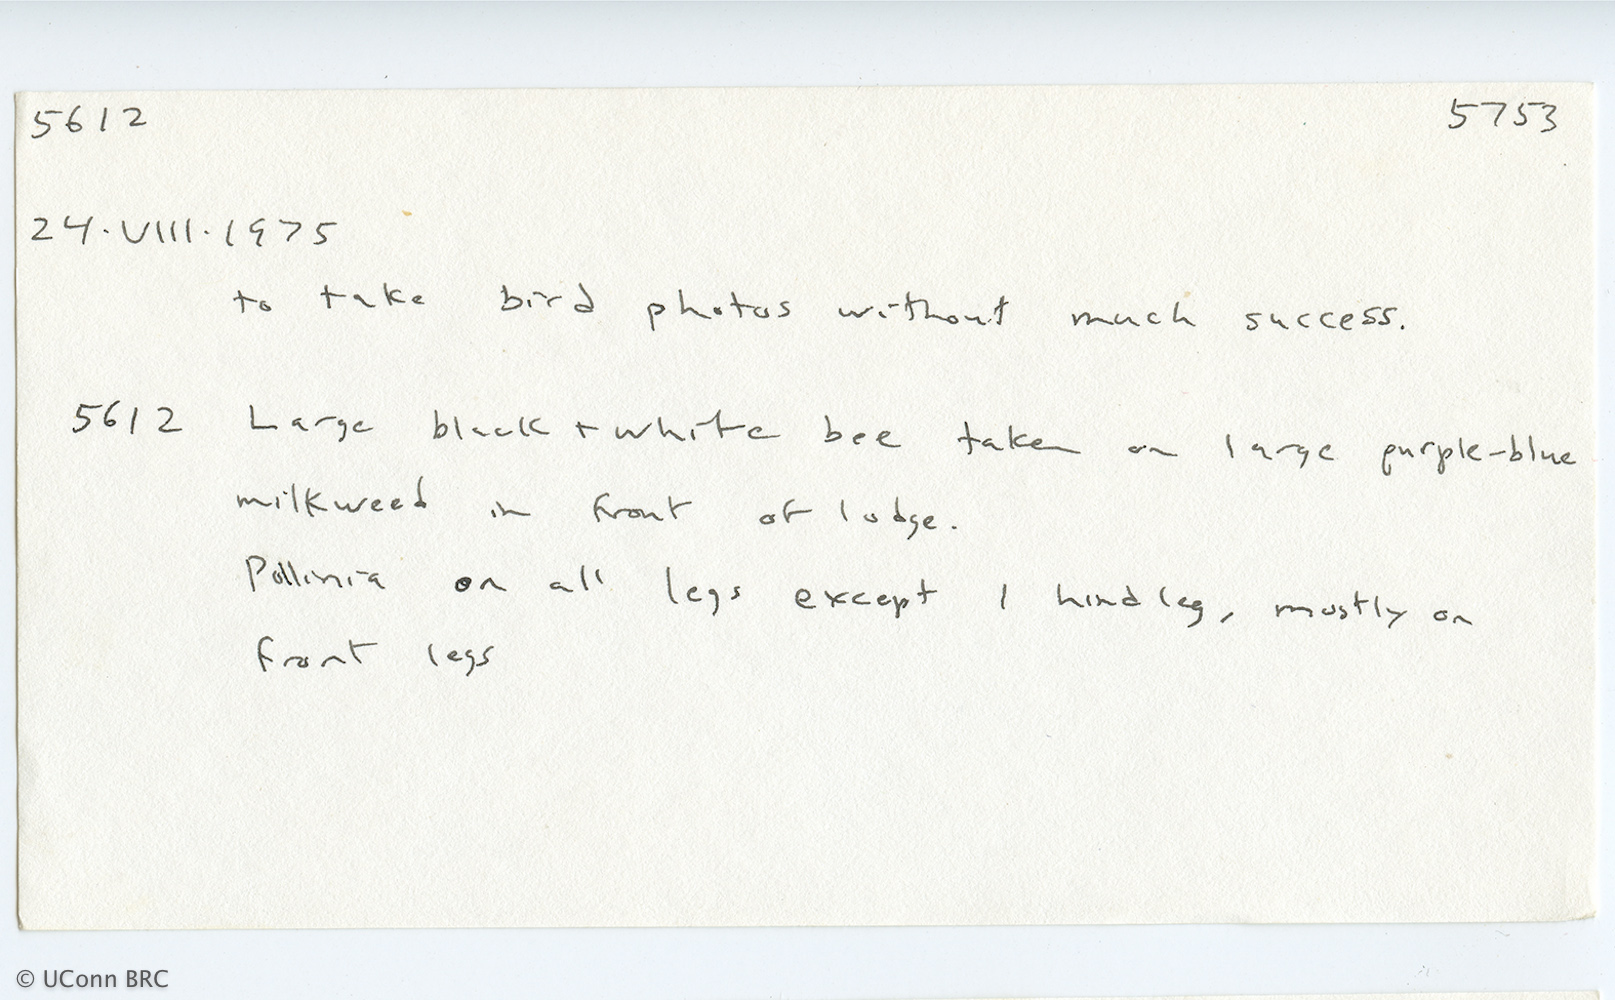 5612 5753
24.VIII.1975
to take bird photos without much success.
5612 Large black + white bee taken on large purple-blue
milkweed in front of lodge.
Pollinia on all legs except 1 hind leg, mostly on
front legs
© UConn BRC